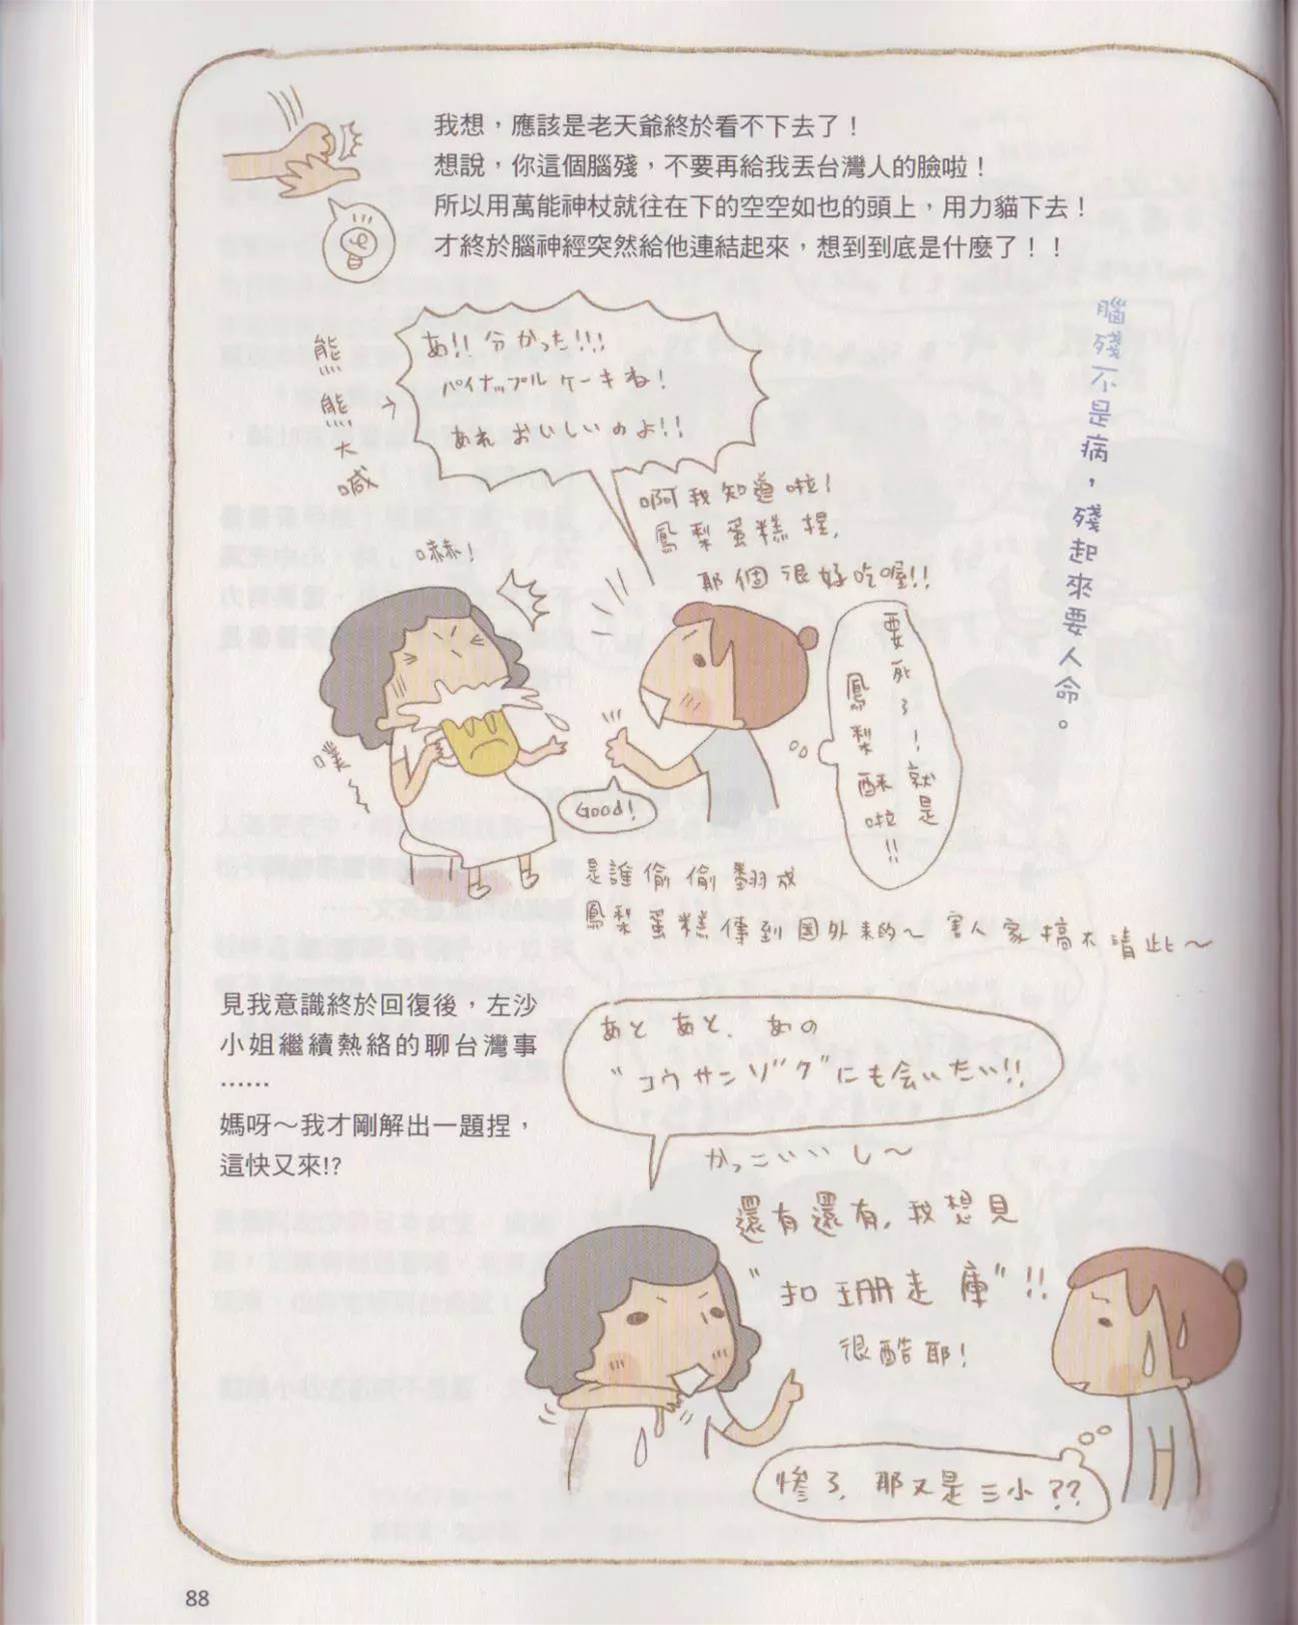 我想，應該是老天爺終於看不下去了！
想說，你這個腦殘，不要再給我丟台灣人的臉啦！
所以用萬能神杖就往在下的空空如也的頭上，用力貓下去！
才終於腦神經突然給他連結起來，想到到底是什麼了！！
腦殘不是病，殘起來要人命。
熊熊大喊
あ!! 分かった!!!
パイナップルケーキね！
あれおいしいのよ!!
啊我知道啦！
鳳梨蛋糕捏，
那個很好吃喔!!
嚇！
噗～
Good！
要死了！就是
鳳梨酥啦!!
是誰偷偷翻成
鳳梨蛋糕傳到国外来的～害人家搞不清此～
見我意識終於回復後，左沙
小姐繼續熱絡的聊台灣事
……
媽呀～我才剛解出一題捏，
這快又來!?
あと あと、あの
"コウサンゾク"にも会いたい!!
かっこいいし～
還有還有，我想見
"扣珊走庫"!!
很酷耶！
慘了，那又是三小??
88